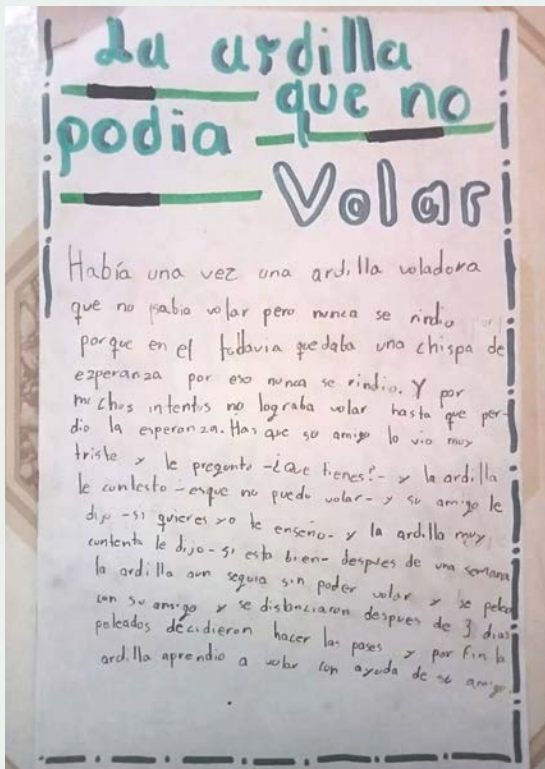 La ardilla
que no
podia
Volar
Había una vez una ardilla voladora
que no sabia volar pero nunca se rindio
porque en el todavia quedaba una chispa de
ezperanza por eso nunca se rindio. Y por
muchos intentos no lograba volar hasta que per-
dio la esperanza. Has que su amigo lo vio muy
triste y le pregunto -¿Que tienes?- y la ardilla
le contesto -esque no puedo volar- y su amigo le
dijo -si quieres yo te enseño- y la ardilla muy
contenta le dijo -si esta bien- despues de una semana
la ardilla aun seguia sin poder volar y se peleo
con su amigo y se distanciaron despues de 3 dias
peleados decidieron hacer las pases y por fin la
ardilla aprendio a volar con ayuda de su amigo